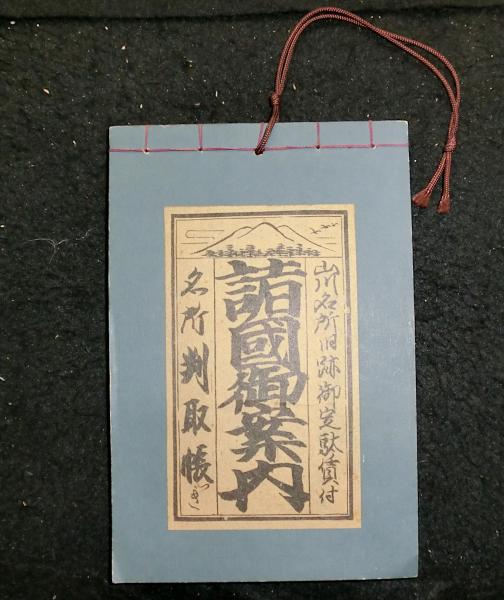 山川名所旧跡御定駄賃付
諸國御案内
名所判取帳つき